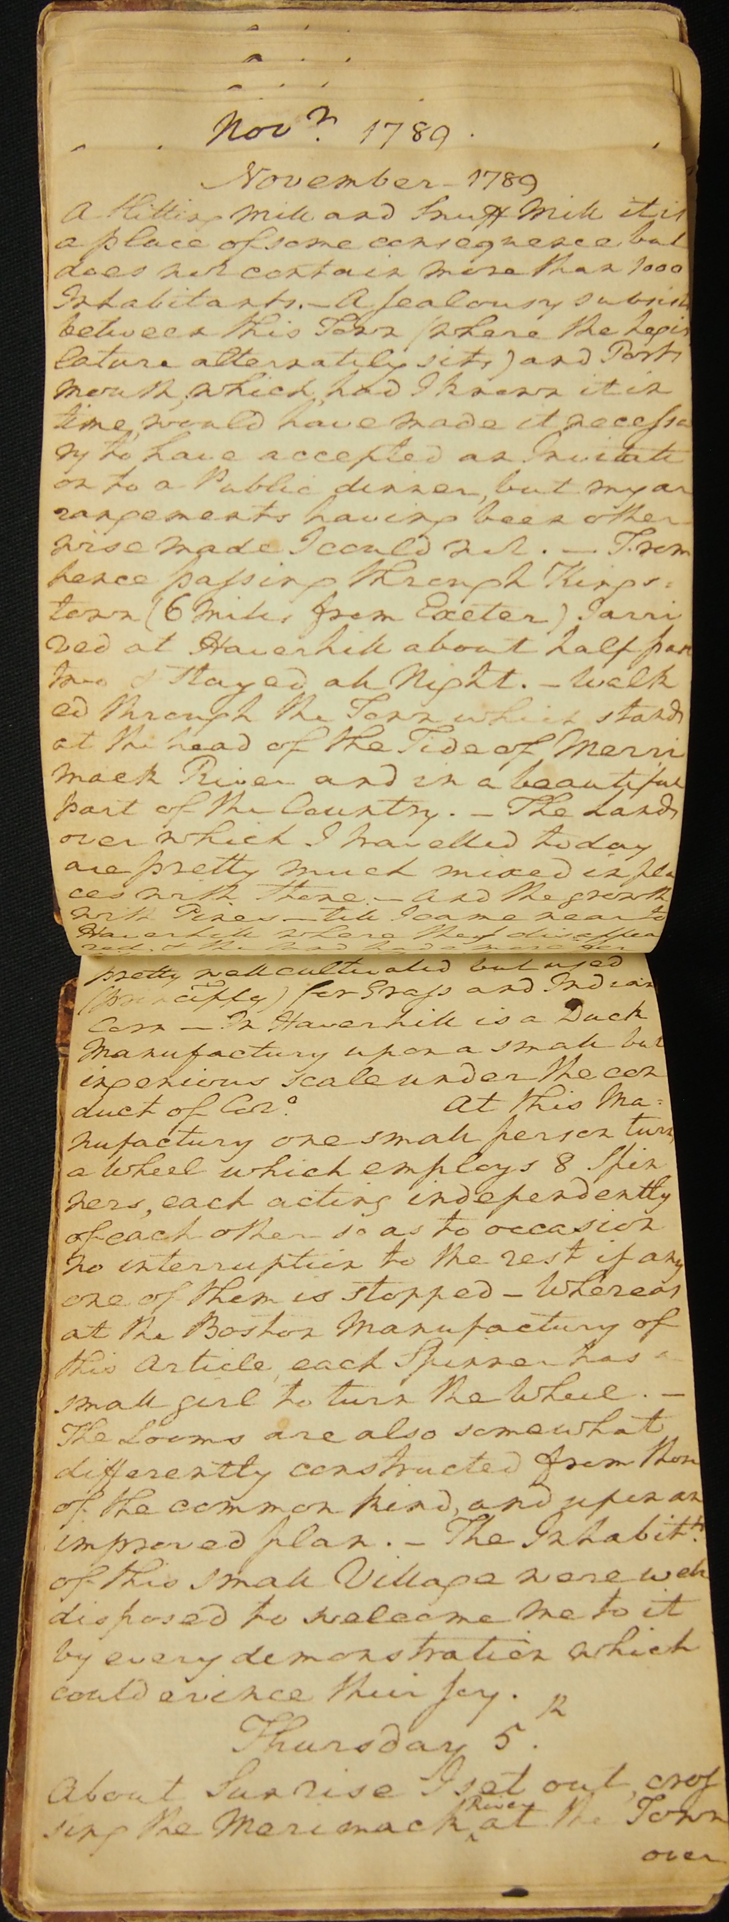 Novr. 1789.
November - 1789
A Slitting Mill and Snuff Mill it is
a place of some consequence but
does not contain more than 1000
Inhabitants. - A jealousy subsists
between this Town (where the Legis
lature alternately sits) and Ports
mouth, which, had I known it in
time, would have made it necessa
ry to have accepted an Invitati
on to a Public dinner, but my ar
rangements having been other
wise made I could not. - From
hence passing through Kings=
town (6 Miles from Exeter) I arri
ved at Haverhill about half past
two & stayed all Night. - Walk
ed through the Town which stands
at the head of the Tide of Merri
mack River and in a beautiful
part of the Country. - The Lands
over which I travelled to day
are pretty much mixed in pla
ces with stone - And the growth
with Pines - till I came near to
Haverhill where they disappea
red, & the land had a more
pretty well cultivated but used
(principally) for Grass and Indian
Corn - In Haverhill is a Duck
Manufactury upon a small but
ingenious scale under the con
duct of Colo. At this Ma=
nufactury one small person turns
a Wheel which employs 8 Spin
ners, each acting independently
of each other so as to occasion
no interruption to the rest if any
one of them is stopped - Whereas
at the Boston Manufactury of
this Article, each Spinner has a
small girl to turn the Wheel. -
The Looms are also somewhat
differently constructed from those
of the common kind, and upon an
improved plan. - The Inhabitts.
of this small Village were well
disposed to welcome me to it
by every demonstration which
could evince their joy.
Thursday 5.th
About Sunrise I set out, cros
sing the Merimack River at the Town
over